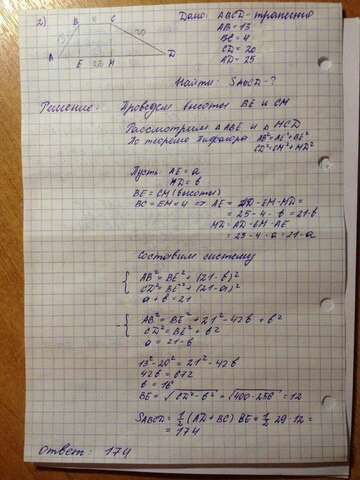 2)
B 4 C
13
20
A E 25 M D
Дано: ABCD - трапеция
AB = 13
BC = 4
CD = 20
AD = 25
Найти: SABCD - ?
Решение: Проведём высоты BE и CM
Рассмотрим △ABE и △MCD
По теореме Пифагора AB² = AE² + BE²
CD² = CM² + MD²
Пусть AE = a
MD = b
BE = CM (высоты)
BC = EM = 4 ⇒ AE = AD - EM - MD =
= 25 - 4 - b = 21 - b
MD = AD - EM - AE
= 25 - 4 - a = 21 - a
Составим систему
{ AB² = BE² + (21 - b)²
CD² = BE² + (21 - a)²
a + b = 21
-{ AB² = BE² + 21² - 42b + b²
CD² = BE² + b²
a = 21 - b
13² - 20² = 21² - 42b
42b = 672
b = 16
BE = √CD² - b² = √400 - 256 = 12
SABCD = 1/2 (AD + BC) BE = 1/2 29 · 12 =
= 174
Ответ: 174